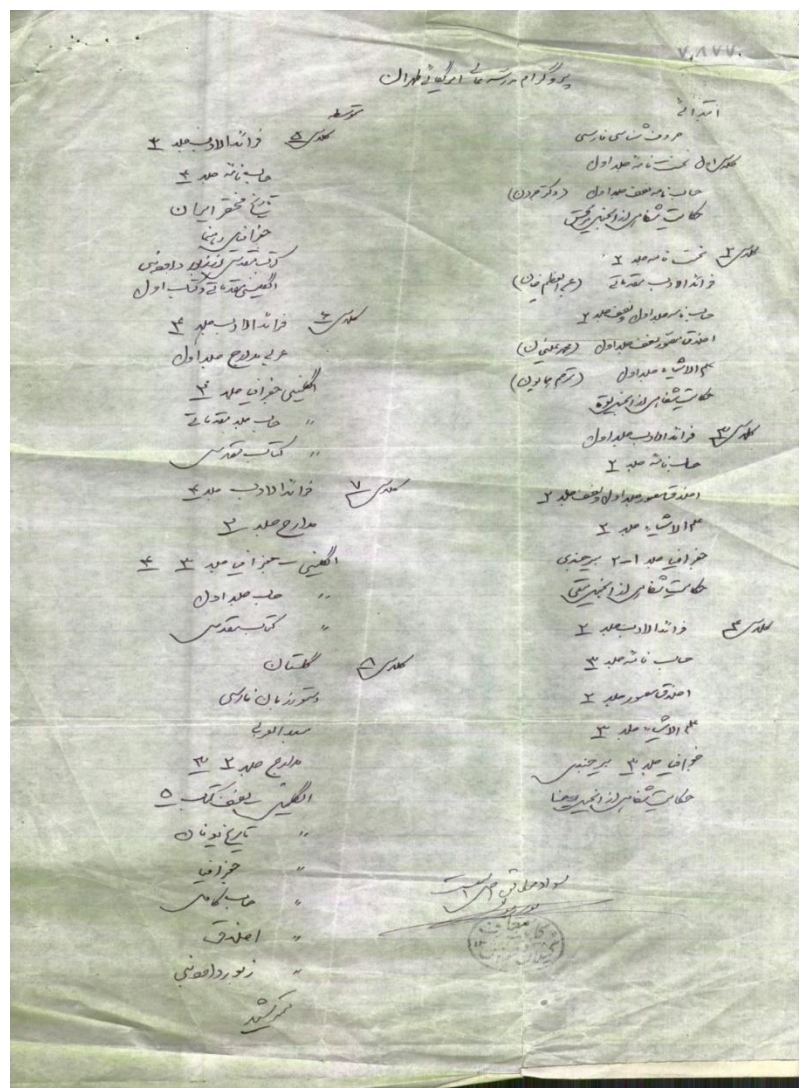 ۷٫۸۷۷۰
پروگرام مدرسه های امریکائی طهران
ابتدائی
حروف شناسی فارسی
کلاس اول نخست نامه جلد اول
حساب نامه نصف جلد اول (دکتر جردن)
حکایت شفاهی از انجیل مرقس
کلاس ۲ نخست نامه جلد ۲
فرائدالادب مقدماتی (عبدالعظیم خان)
حساب نامه جلد اول و نصف جلد ۲
اخلاق مصور نصف جلد اول
علم الاشیاء جلد اول
حکایت شفاهی از انجیل لوقا
کلاس ۳ فرائدالادب جلد اول
حساب نامه جلد ۲
اخلاق مصور جلد اول و نصف جلد ۲
علم الاشیاء جلد ۲
جغرافی جلد ۱-۲ بیرجندی
حکایت شفاهی از انجیل متی
کلاس ۴ فرائدالادب جلد ۲
حساب نامه جلد ۳
اخلاق مصور جلد ۲
علم الاشیاء جلد ۳
جغرافی جلد ۳ بیرجندی
حکایت شفاهی از انجیل یوحنا
متوسطه
کلاس ۵ فرائدالادب جلد ۳
حساب نامه جلد ۴
تاریخ مختصر ایران
جغرافی
کتاب مقدس از زبور داود نبی
انگلیسی مقدماتی و کتاب اول
کلاس ۶ فرائدالادب جلد ۴
عربی مدارج جلد اول
انگلیسی جغرافی جلد ۳
〃 حساب جلد مقدماتی
〃 کتاب مقدس
کلاس ۷ فرائدالادب جلد ۴
مدارج جلد ۲
انگلیسی جغرافی جلد ۳ ۴
〃 حساب جلد اول
〃 کتاب مقدس
کلاس ۸ گلستان
دستور زبان فارسی
مدارج جلد ۲ ۳
انگلیسی نصف کتاب ۵
〃 تاریخ یونان
〃 جغرافیا
〃 حساب
〃 اخلاق
〃 زبور داود نبی
سواد مطابق اصل است